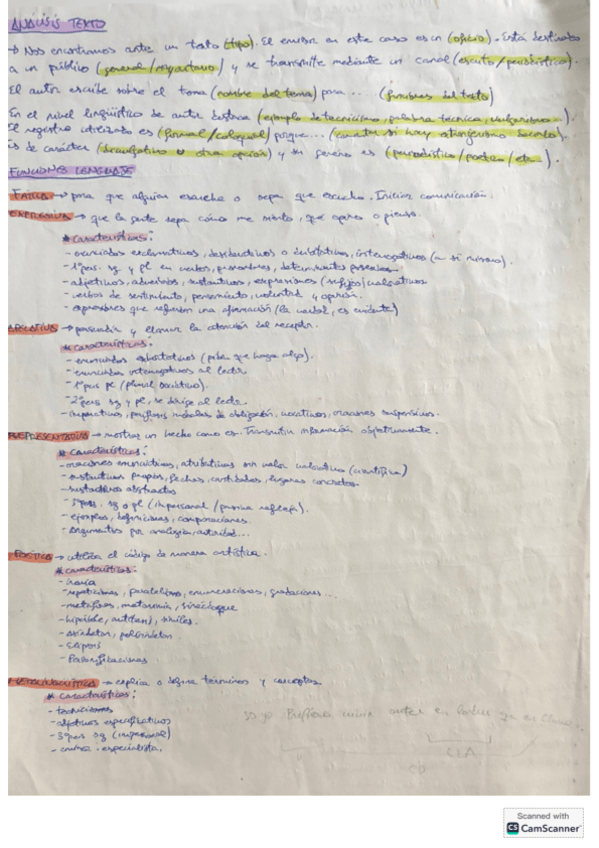 ANÁLISIS TEXTO
→ Nos encontramos ante un texto (tipo). El emisor en este caso es un (oficio). Está destinado
a un público (general/mayoritario) y se transmite mediante un canal (escrito/periodístico).
El autor escribe sobre el tema (nombre del tema) para... (funciones del texto)
En el nivel lingüístico de autor destaca (ejemplo de tecnicismo, palabra técnica, vulgarismo...).
El registro utilizado es (formal/coloquial) porque...
Es de carácter (divulgativo u otra opción) y su género es (periodístico/poética/etc...).
FUNCIONES LENGUAJE
FÁTICA → para que alguien escucha o sepa que escucho. Iniciar comunicación.
EXPRESIVA → que la gente sepa cómo me siento, que opino o pienso.
* Características:
- enunciados exclamativos, desiderativos o dubitativos, interrogativos (a sí mismo).
- 1ª pers. sg y pl en verbos, pronombres, determinantes posesivos
- adjetivos, adverbios, sustantivos, expresiones (sufijos) valorativos
- verbos de sentimiento, pensamiento, voluntad y opinión.
- expresiones que refuerzan una afirmación (la verdad, es evidente)
APELATIVA → persuadir y llamar la atención del receptor.
* Características:
- enunciados exhortativos (pides que hagas algo).
- enunciados interrogativos al lector
- 1ª pers pl (plural sociativo).
- 2ª pers sg y pl, se dirige al lector.
- imperativos, perífrasis modales de obligación, vocativos, oraciones suspensivas.
REPRESENTATIVA → mostrar un hecho como es. Transmitir información objetivamente.
* Características:
- oraciones enunciativas, atributivas sin valor valorativo (científica)
- sustantivos propios, fechas, cantidades, lugares concretos
- sustantivos abstractos
- 3ª pers. sg o pl (impersonal / pasiva refleja).
- ejemplos, definiciones, comparaciones.
- argumentos por analogía, autoridad...
POÉTICA → utiliza el código de manera artística.
* Características:
- ironía
- repeticiones, paralelismo, enumeraciones, gradaciones...
- metáforas, metonimia, sinécdoque
- hipérbole, antítesis, símiles.
- asíndeton, polisíndeton
- Elipsis
- Personificaciones
METALINGÜÍSTICA → explica o define términos y conceptos
* Características:
- tecnicismos
- adjetivos especificativos
- 3ª pers sg (impersonal)
- especialista.
CD
Scanned with
CS CamScanner